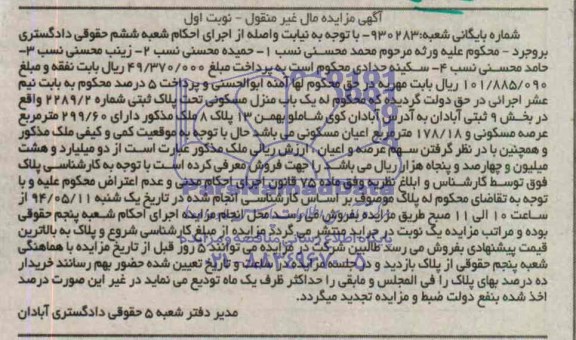 آگهی مزایده مال غیر منقول - نوبت اول
شماره بایگانی شعبه: 930283- با توجه به نیابت واصله از اجرای احکام شعبه ششم حقوقی دادگستری
بروجرد - محکوم علیه ورثه مرحوم محمد محسنی نسب 1- حمیده محسنی نسب 2- زینب محسنی نسب 3-
حامد محسنی نسب 4- سکینه حدادی محکوم است به پرداخت مبلغ 49/370/000 ریال بابت نفقه و مبلغ
101/885/090 ریال بابت مهریه در حق محکوم لها آمنه ابوالحسنی و پرداخت 5 درصد محکوم به بابت نیم
عشر اجرائی در حق دولت گردیده که محکوم له یک باب منزل مسکونی تحت پلاک ثبتی شماره 2289/2 واقع
در بخش 9 ثبتی آبادان به آدرس آبادان کوی شاملو بهمن 13 پلاک 8 ملک مذکور دارای 299/60 مترمربع
عرصه مسکونی و 178/18 مترمربع اعیان مسکونی می باشد حال با توجه به موقعیت کمی و کیفی ملک مذکور
و همچنین با در نظر گرفتن سهم عرصه و اعیان، ارزش ریالی ملک مذکور عبارت است از دو میلیارد و هشت
میلیون و چهارصد و پنجاه هزار ریال می باشد. را جهت فروش معرفی کرده است با توجه به کارشناسی پلاک
فوق توسط کارشناس و ابلاغ نظریه وفق ماده 75 قانون اجرای احکام مدنی و عدم اعتراض محکوم علیه و با
توجه به تقاضای محکوم له پلاک موصوف بر اساس کارشناسی انجام شده در تاریخ یک شنبه 94/05/11 از
ساعت 10 الی 11 صبح طریق مزایده بفروش می رسد محل انجام مزایده اجرای احکام شعبه پنجم حقوقی
بوده و مراتب مزایده یک نوبت در جراید منتشر می گردد مزایده از مبلغ کارشناسی شروع و پلاک به بالاترین
قیمت پیشنهادی بفروش می رسد طالبین شرکت در مزایده می توانند 5 روز قبل از تاریخ مزایده با هماهنگی
شعبه پنجم حقوقی از پلاک بازدید و در جلسه مزایده در ساعت و تاریخ تعیین شده حضور بهم رسانند خریدار
ده درصد بهای پلاک را فی المجلس و مابقی را حداکثر ظرف یک ماه تودیع می نماید در غیر این صورت درصد
اخذ شده بنفع دولت ضبط و مزایده تجدید میگردد.
مدیر دفتر شعبه 5 حقوقی دادگستری آبادان